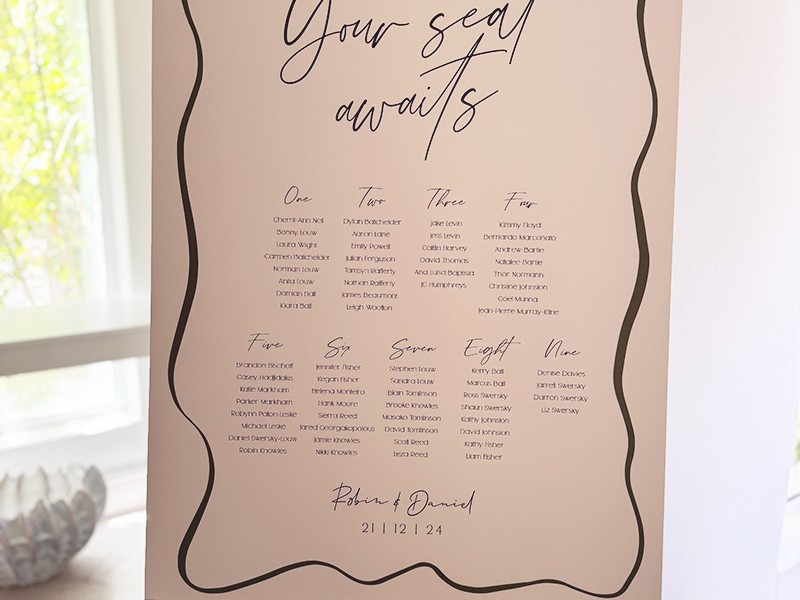 Your seat
awaits
One
Cherril-Ann Nell
Bonny Louw
Laura Wight
Carmen Batchelder
Norman Louw
Anita Louw
Damian Ball
Kiara Ball
Two
Dylan Batchelder
Aaron Lane
Emily Powell
Julian Ferguson
Tamsyn Rafferty
Nathan Rafferty
James Beaumont
Leigh Wootton
Three
Jake Levin
Jess Levin
Caitlin Harvey
David Thomas
Ana Luisa Baptista
JC Humphreys
Four
Kimmy Floyd
Bernardo Marconato
Andrew Bartie
Natalee Bartie
Thor Normann
Christine Johnston
Coel Munna
Jean-Pierre Murray-Kline
Five
Brandon Bischoff
Casey Hadjidakis
Katie Markham
Parker Markham
Robynn Paton-Leske
Michael Leske
Daniel Swersky-Louw
Robin Knowles
Six
Jennifer Fisher
Kegan Fisher
Helena Monteiro
Hank Moore
Sierra Reed
Jared Georgakopolous
Jamie Knowles
Nikki Knowles
Seven
Stephen Louw
Sandra Louw
Blain Tomlinson
Brooke Knowles
Masako Tomlinson
David Tomlinson
Scott Reed
Leza Reed
Eight
Kerry Ball
Marcus Ball
Ross Swersky
Shaun Swersky
Kathy Johnston
David Johnston
Kathy Fisher
Liam Fisher
Nine
Denise Davies
Jarrett Swersky
Darron Swersky
Liz Swersky
Robin & Daniel
21 | 12 | 24